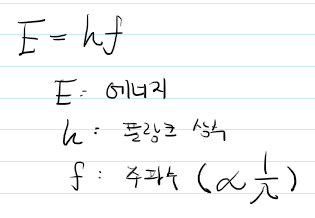 E = hf
E : 에너지
h : 플랑크 상수
f : 주파수 (∝ 1/λ)